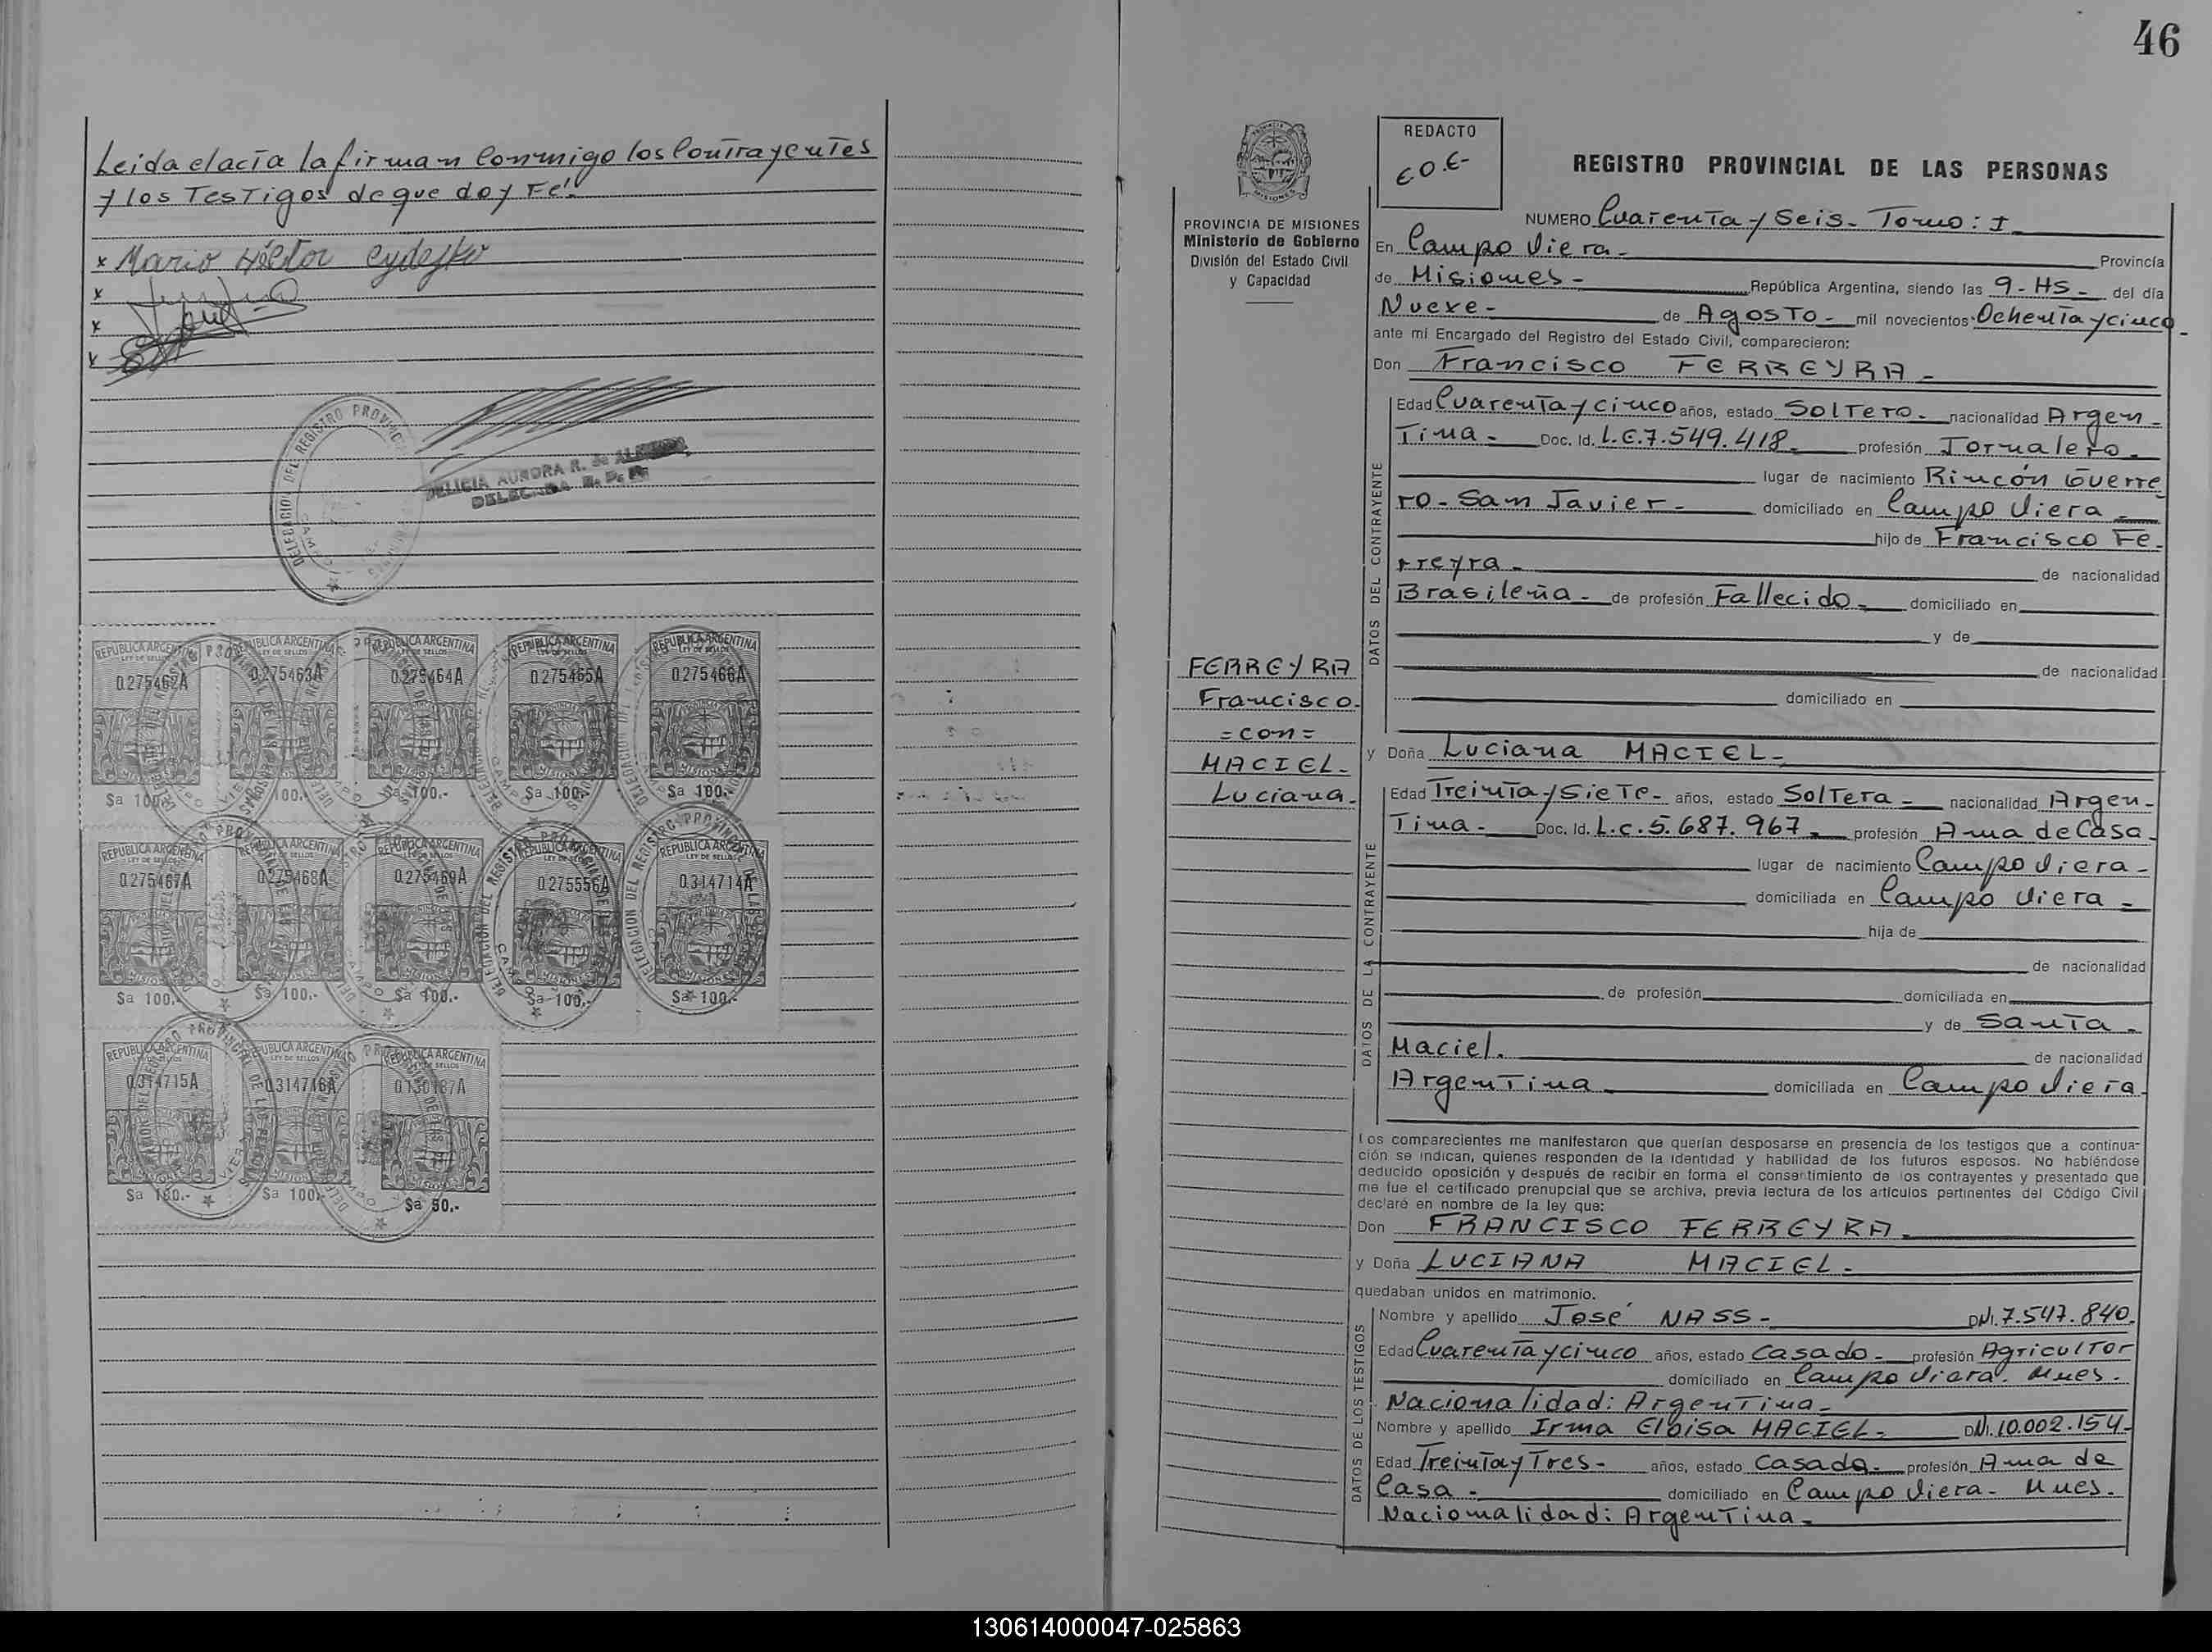 46
Leida el acta la firman Conmigo los Contrayentes
y los Testigos de que doy Fé.
x Mario Héctor
x
x
x
DELEGACION DEL REGISTRO PROVINCIAL
DELICIA AURORA R. de
DELEGADA R. P. P.
REPUBLICA ARGENTINA REPUBLICA ARGENTINA REPUBLICA ARGENTINA REPUBLICA ARGENTINA REPUBLICA ARGENTINA
LEY DE SELLOS LEY DE SELLOS LEY DE SELLOS LEY DE SELLOS LEY DE SELLOS
0.275462A 0.275463A 0.275464A 0.275465A 0.275466A
MISIONES MISIONES MISIONES MISIONES MISIONES
$a 100.- $a 100.- $a 100.- $a 100.- $a 100.-
REPUBLICA ARGENTINA REPUBLICA ARGENTINA REPUBLICA ARGENTINA REPUBLICA ARGENTINA REPUBLICA ARGENTINA
LEY DE SELLOS LEY DE SELLOS LEY DE SELLOS LEY DE SELLOS LEY DE SELLOS
0.275467A 0.275468A 0.275469A 0.275556A 0.314714A
MISIONES MISIONES MISIONES MISIONES MISIONES
$a 100.- $a 100.- $a 100.- $a 100.- $a 100.-
REPUBLICA ARGENTINA REPUBLICA ARGENTINA REPUBLICA ARGENTINA
LEY DE SELLOS LEY DE SELLOS LEY DE SELLOS
0.314715A 0.314716A 0.130187A
MISIONES MISIONES MISIONES
$a 100.- $a 100.- $a 50.-
MISIONES
PROVINCIA DE MISIONES
Ministerio de Gobierno
División del Estado Civil
y Capacidad
FERREYRA
Francisco.
=con=
MACIEL-
Luciana.
REDACTO
REGISTRO PROVINCIAL DE LAS PERSONAS
NUMERO Cuarenta y Seis- Tomo: I
En Campo Viera- Provincia
de Misiones- República Argentina, siendo las 9-HS- del día
Nueve- de Agosto- mil novecientos Ochenta y cinco-
ante mí Encargado del Registro del Estado Civil, comparecieron:
Don Francisco FERREYRA-
DATOS DEL CONTRAYENTE
Edad Cuarenta y cinco años, estado Soltero- nacionalidad Argen-
Tina- Doc. Id. L.E.7.549.418- profesión Jornalero-
lugar de nacimiento Rincón Guerre
ro- San Javier- domiciliado en Campo Viera-
hijo de Francisco Fe-
rreyra- de nacionalidad
Brasileña- de profesión Fallecido- domiciliado en
y de
de nacionalidad
domiciliado en
y Doña Luciana MACIEL-
DATOS DE LA CONTRAYENTE
Edad Treinta y Siete- años, estado Soltera- nacionalidad Argen-
Tina- Doc. Id. L.C.5.687.967- profesión Ama de Casa-
lugar de nacimiento Campo Viera-
domiciliada en Campo Viera-
hija de
de nacionalidad
de profesión domiciliada en
y de Santa-
Maciel. de nacionalidad
Argentina domiciliada en Campo Viera
Los comparecientes me manifestaron que querían desposarse en presencia de los testigos que a continua-
ción se indican, quienes responden de la identidad y habilidad de los futuros esposos. No habiéndose
deducido oposición y después de recibir en forma el consentimiento de los contrayentes y presentado que
me fue el certificado prenupcial que se archiva, previa lectura de los artículos pertinentes del Código Civil
declaré en nombre de la ley que:
Don FRANCISCO FERREYRA-
y Doña LUCIANA MACIEL-
quedaban unidos en matrimonio.
DATOS DE LOS TESTIGOS
Nombre y apellido José NASS- DNI.7.547.840.
Edad Cuarenta y cinco años, estado Casado- profesión Agricultor
domiciliado en Campo Viera. Mnes.
Nacionalidad: Argentina-
Nombre y apellido Irma Eloisa MACIEL- DNI.10.002.154-
Edad Treinta y Tres- años, estado Casada- profesión Ama de
Casa- domiciliado en Campo Viera- Mnes.
Nacionalidad: Argentina-
130614000047-025863